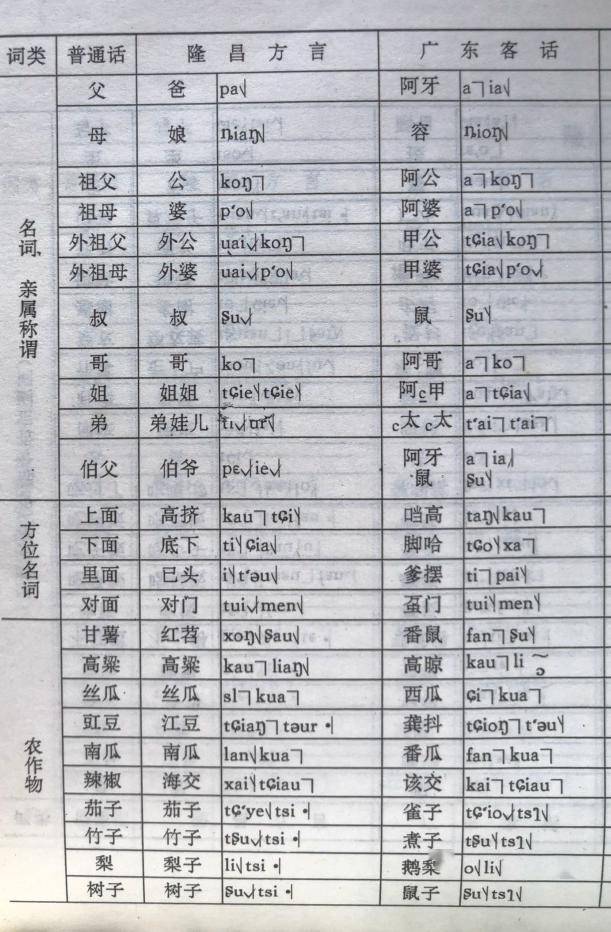 词类 普通话 隆昌方言 广东客话
名词、亲属称谓
父 爸 pa˩ 阿牙 a˥ia˩
母 娘 ȵiaŋ˩ 容 ȵioŋ˩
祖父 公 koŋ˥ 阿公 a˥koŋ˥
祖母 婆 p‘o˩ 阿婆 a˥p‘o˩
外祖父 外公 koŋ˥ 甲公 koŋ˥
外祖母 外婆 p‘o 甲婆 p‘o
叔 叔 ʂu 鼠 ʂu
哥 哥 ko˥ 阿哥 a˥ko˥
姐 姐姐 tɕie tɕie 阿c甲 a˥tɕia
弟 弟娃儿 c太c太 t‘ai˥t‘ai˥
伯父 伯爷 pɛ ie 阿牙 a˥ia
鼠 ʂu
方位名词
上面 高挤 kau˥tɕi 高 taŋ kau˥
下面 底下 ti ɕia 脚哈 tɕo xa˥
里面 已头 i t‘əu 爹摆 ti˥pai
对面 对门 tui men 虿门 tui men
农作物
甘薯 红苕 xoŋ ʂau 番鼠 fan˥ʂu
高粱 高粱 kau˥liaŋ 高晾 kau˥li
丝瓜 丝瓜 sl˥kua˥ 西瓜 ɕi˥kua˥
豇豆 江豆 tɕiaŋ˥təur 龚抖 tɕioŋ˥t‘əu
南瓜 南瓜 lan kua˥ 番瓜 fan˥kua˥
辣椒 海交 xai tɕiau˥ 该交 kai˥tɕiau˥
茄子 茄子 tɕ‘ye tsi 雀子 tɕ‘io tsɿ
竹子 竹子 tʂu tsi 煮子 tʂu tsɿ
梨 梨子 li tsi 鹅梨 o li
树子 树子 ʂu tsi 鼠子 ʂu tsɿ